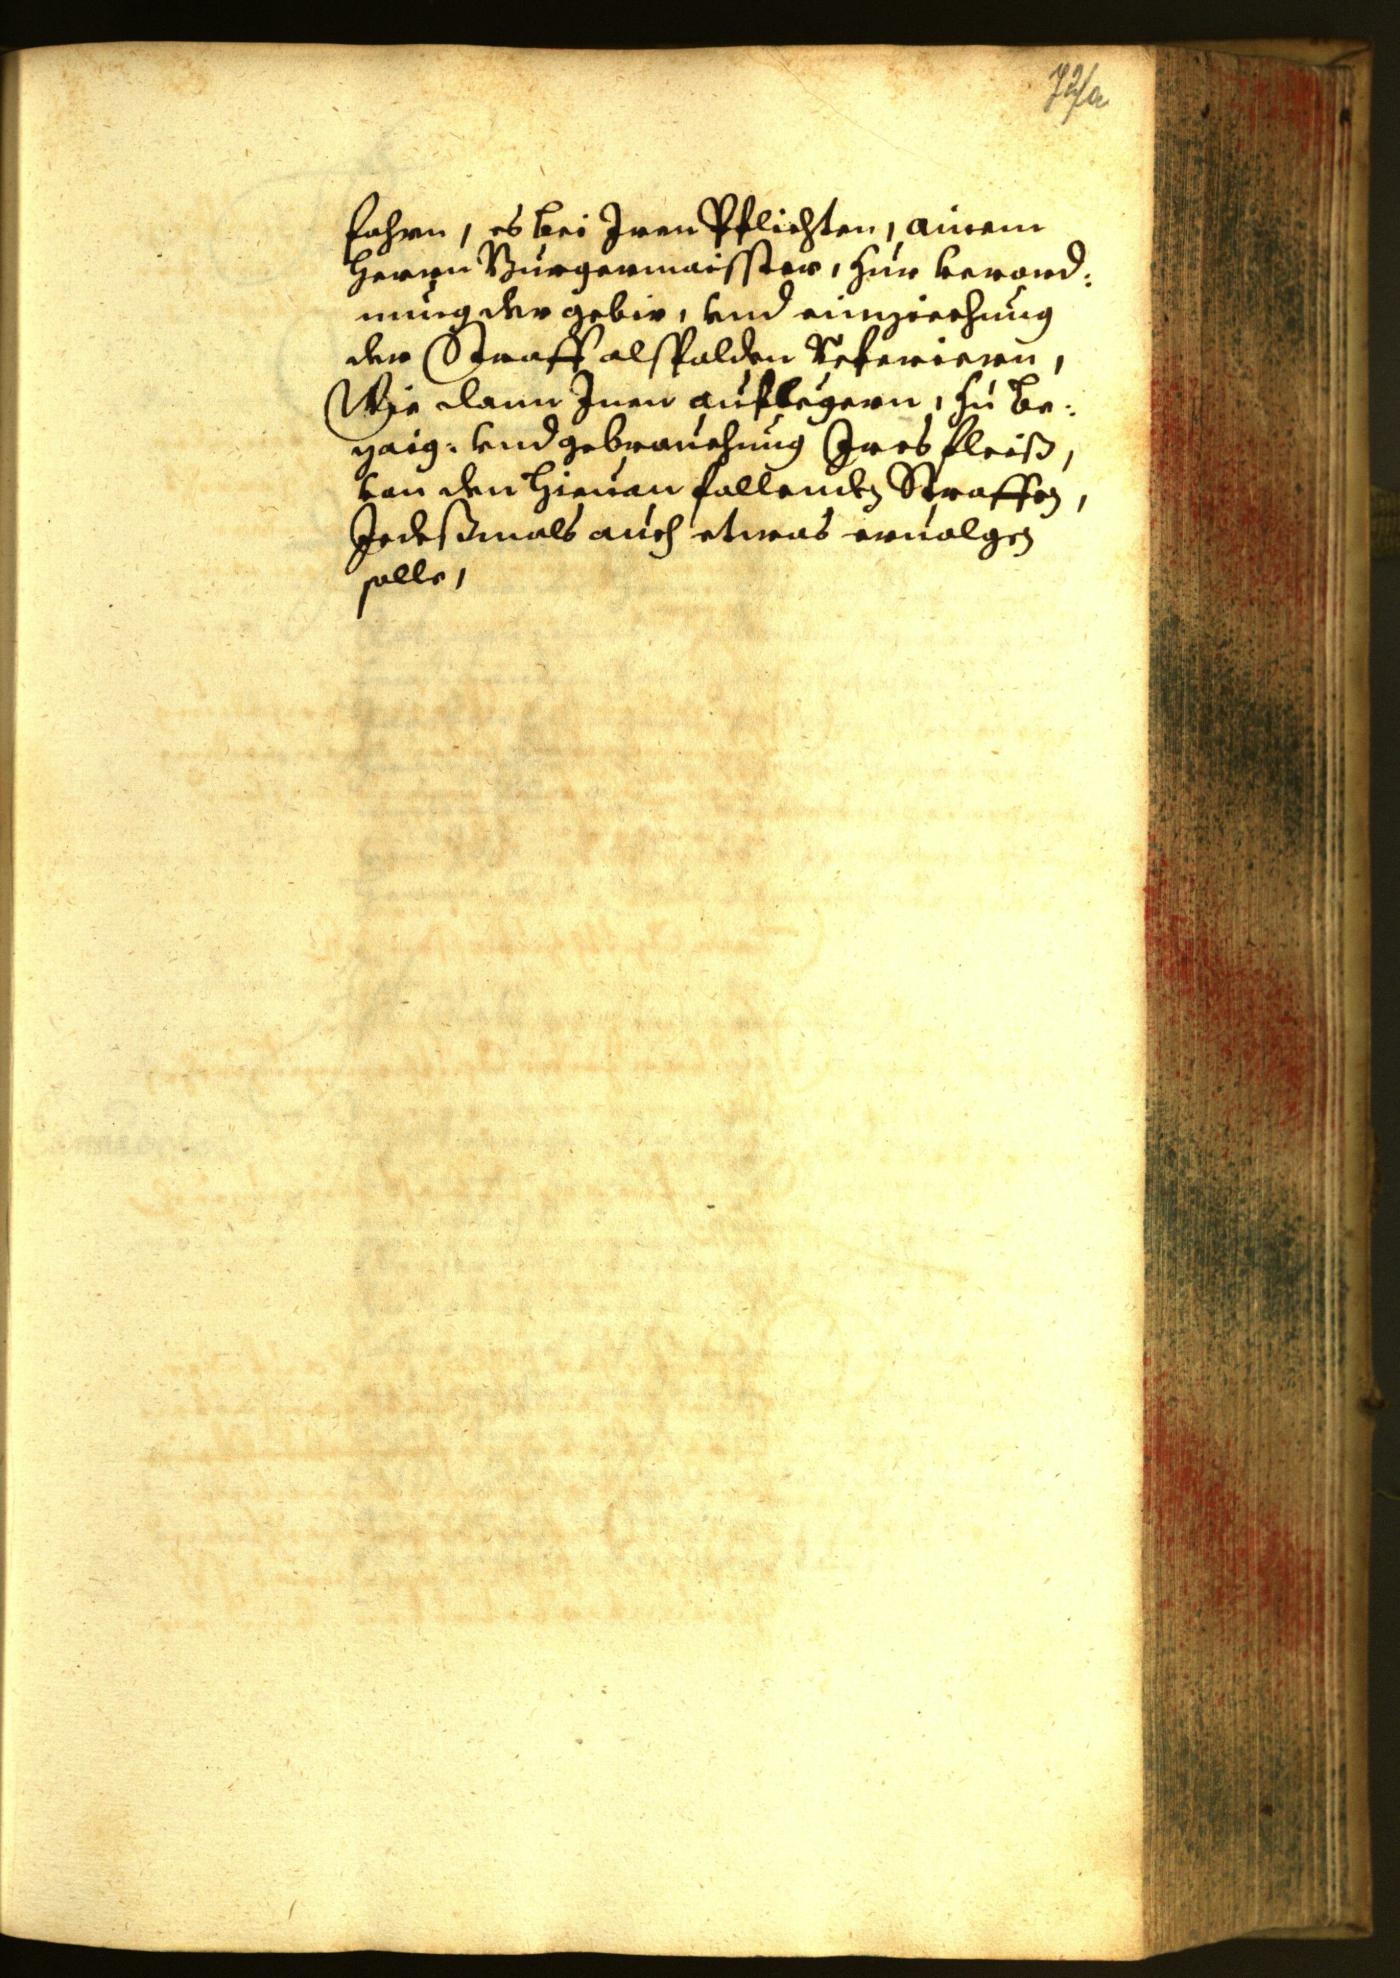 72/a
fahrn, es bei Iren Pflichten, ainem
herrn Burgermaisster, zur verord¬
nung der gebir, vnd einziechung
der Straff alspalden referiern,
Wie dann Inen auflegern, zu be¬
zaig: vnd gebrauchung Ires fleiß,
von den hieuon fallenden Straffen,
Jedeßmals auch etwas eruolgen
solle,